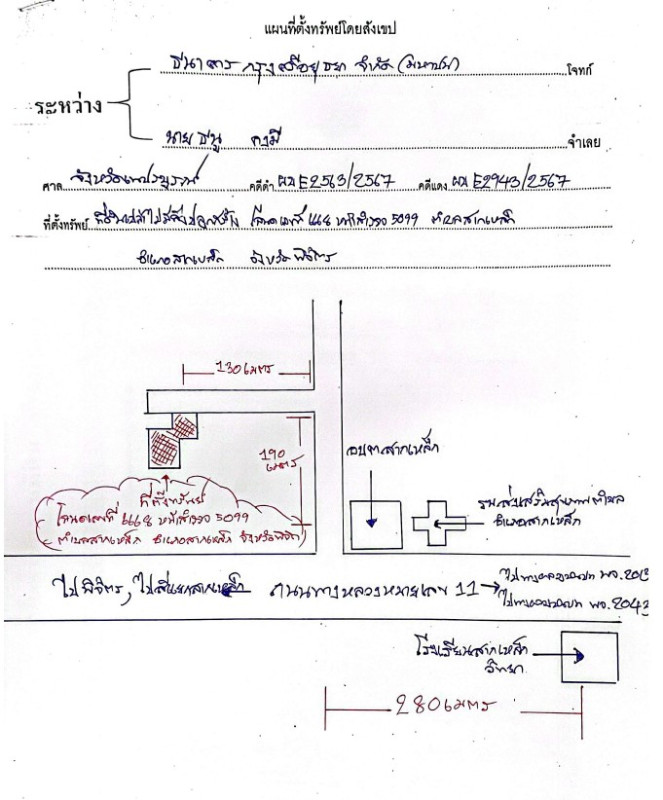 แผนที่ตั้งทรัพย์โดยสังเขป
ธนาคาร กรุงศรีอยุธยา จำกัด (มหาชน) โจทก์
ระหว่าง
นาย ธนู คงมี จำเลย
ศาล จังหวัดเพชรบูรณ์ คดีดำ ผบ E2563/2567 คดีแดง ผบ E2943/2567
ที่ตั้งทรัพย์ ที่ดินเปล่าไม่มีสิ่งปลูกสร้าง โฉนดเลขที่ หน้าสำรวจ 5099 ตำบลสากเหล็ก
อำเภอสากเหล็ก จังหวัดพิจิตร
130 เมตร
190
เมตร
อบต.สากเหล็ก
ที่ตั้งทรัพย์
โฉนดเลขที่ หน้าสำรวจ 5099
ตำบลสากเหล็ก อำเภอสากเหล็ก จังหวัดพิจิตร
รพ.ส่งเสริมสุขภาพตำบล
อำเภอสากเหล็ก
ไปพิจิตร, ไปสี่แยกสากเหล็ก ถนนทางหลวงหมายเลข 11
ไปทางหลวงชนบท พจ.
ไปทางหลวงชนบท พจ. 2042
โรงเรียนสากเหล็ก
วิทยา
280 เมตร